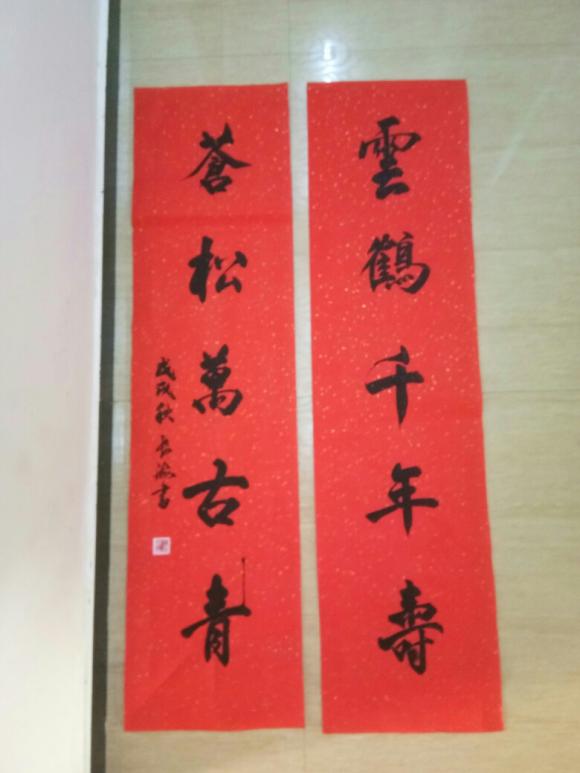 雲鶴千年壽
蒼松萬古青
戊戌秋长海書